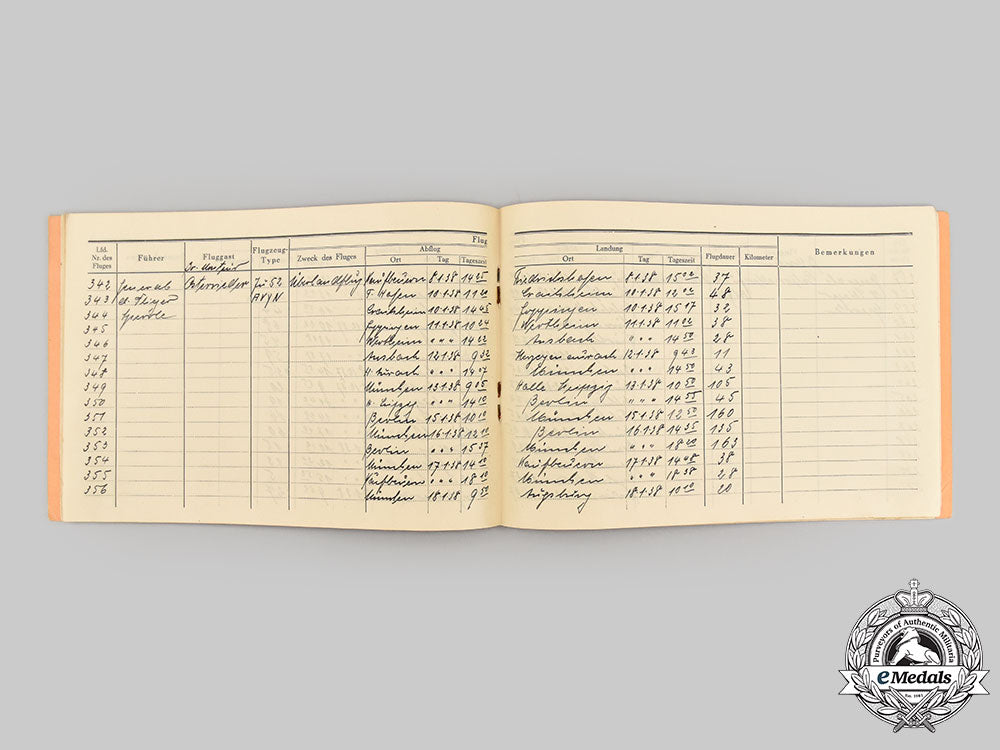 Flug
Lfd. Nr. des Fluges Führer Fluggast Flugzeug-Type Zweck des Fluges Abflug Ort Tag Tageszeit Landung Ort Tag Tageszeit Flugdauer Kilometer Bemerkungen
342 General Ju 52 Überlandflug Kaufbeuren 8.1.38 14 25 Friedrichshafen 8.1.38 15 02 37
343 d. Flieger AVYN F. Hafen 10.1.38 11 Crailsheim 10.1.38 12 48
344 Sperrle Crailsheim 10.1.38 14 45 Göppingen 10.1.38 15 17 32
345 Göppingen 11.1.38 10 24 Wertheim 11.1.38 11 02 38
346 Wertheim " " " 14 22 Ansbach " " " 14 50 28
347 Ansbach 12.1.38 9 32 Herzogenaurach 12.1.38 9 43 11
348 H. Aurach " " " 14 07 München " " " 14 50 43
349 München 13.1.38 9 05 Halle Leipzig 13.1.38 10 50 105
350 H. Leipzg " " " 14 10 Berlin " " " 14 55 45
351 Berlin 15.1.38 10 10 München 15.1.38 12 50 160
352 München 16.1.38 12 Berlin 16.1.38 14 35 135
353 Berlin " " " 15 37 München " " " 18 163
354 München 17.1.38 14 10 Kaufbeuren 17.1.38 14 48 38
355 Kaufbeuren " " " 18 10 München " " " 18 38 28
356 München 18.1.38 9 50 Augsburg 18.1.38 10 10 20
Purveyors of Authentic Militaria
eMedals